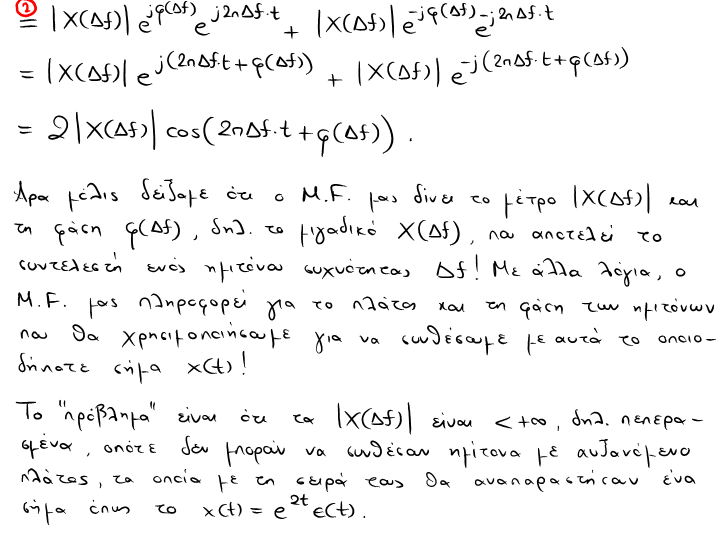 ②
= |X(Δf)| e^{jφ(Δf)} e^{j2πΔf·t} + |X(Δf)| e^{-jφ(Δf)} e^{-j2πΔf·t}
= |X(Δf)| e^{j(2πΔf·t+φ(Δf))} + |X(Δf)| e^{-j(2πΔf·t+φ(Δf))}
= 2|X(Δf)| cos(2πΔf·t+φ(Δf)).
Άρα μόλις δείξαμε ότι ο Μ.F. μας δίνει το μέτρο |X(Δf)| και
τη φάση φ(Δf), δηλ. το μιγαδικό X(Δf), που αποτελεί το
συντελεστή ενός ημιτόνου συχνότητας Δf! Με άλλα λόγια, ο
Μ.F. μας πληροφορεί για το πλάτος και τη φάση των ημιτόνων
που θα χρησιμοποιήσουμε για να συνθέσουμε με αυτά το οποιο-
δήποτε σήμα x(t)!
Το "πρόβλημα" είναι ότι τα |X(Δf)| είναι < +∞, δηλ. πεπερα-
σμένα, οπότε δεν μπορούν να συνθέσουν ημίτονα με αυξανόμενο
πλάτος, τα οποία με τη σειρά τους θα αναπαραστήσουν ένα
σήμα όπως το x(t) = e^{2t} ε(t).